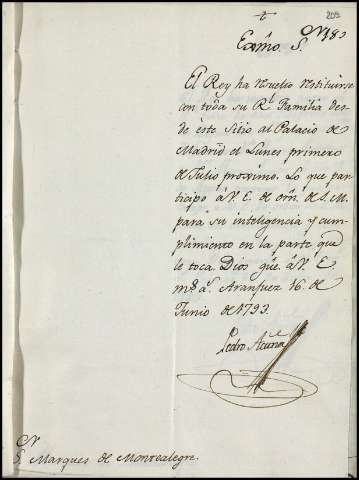 209
Exmo. S.
El Rey ha resuelto restituirse
con toda su Rl. Familia des-
de este Sitio al Palacio de
Madrid el Lunes primero
de Julio proximo. Lo que par-
ticipo á V. E. de orn. de S. M.
para su inteligencia y cum-
plimiento en la parte que
le toca. Dios gue. á V. E
ms. as. Aranjuez 16. de
Junio de 1793.
Pedro Acuña
S. Marques de Montealegre.